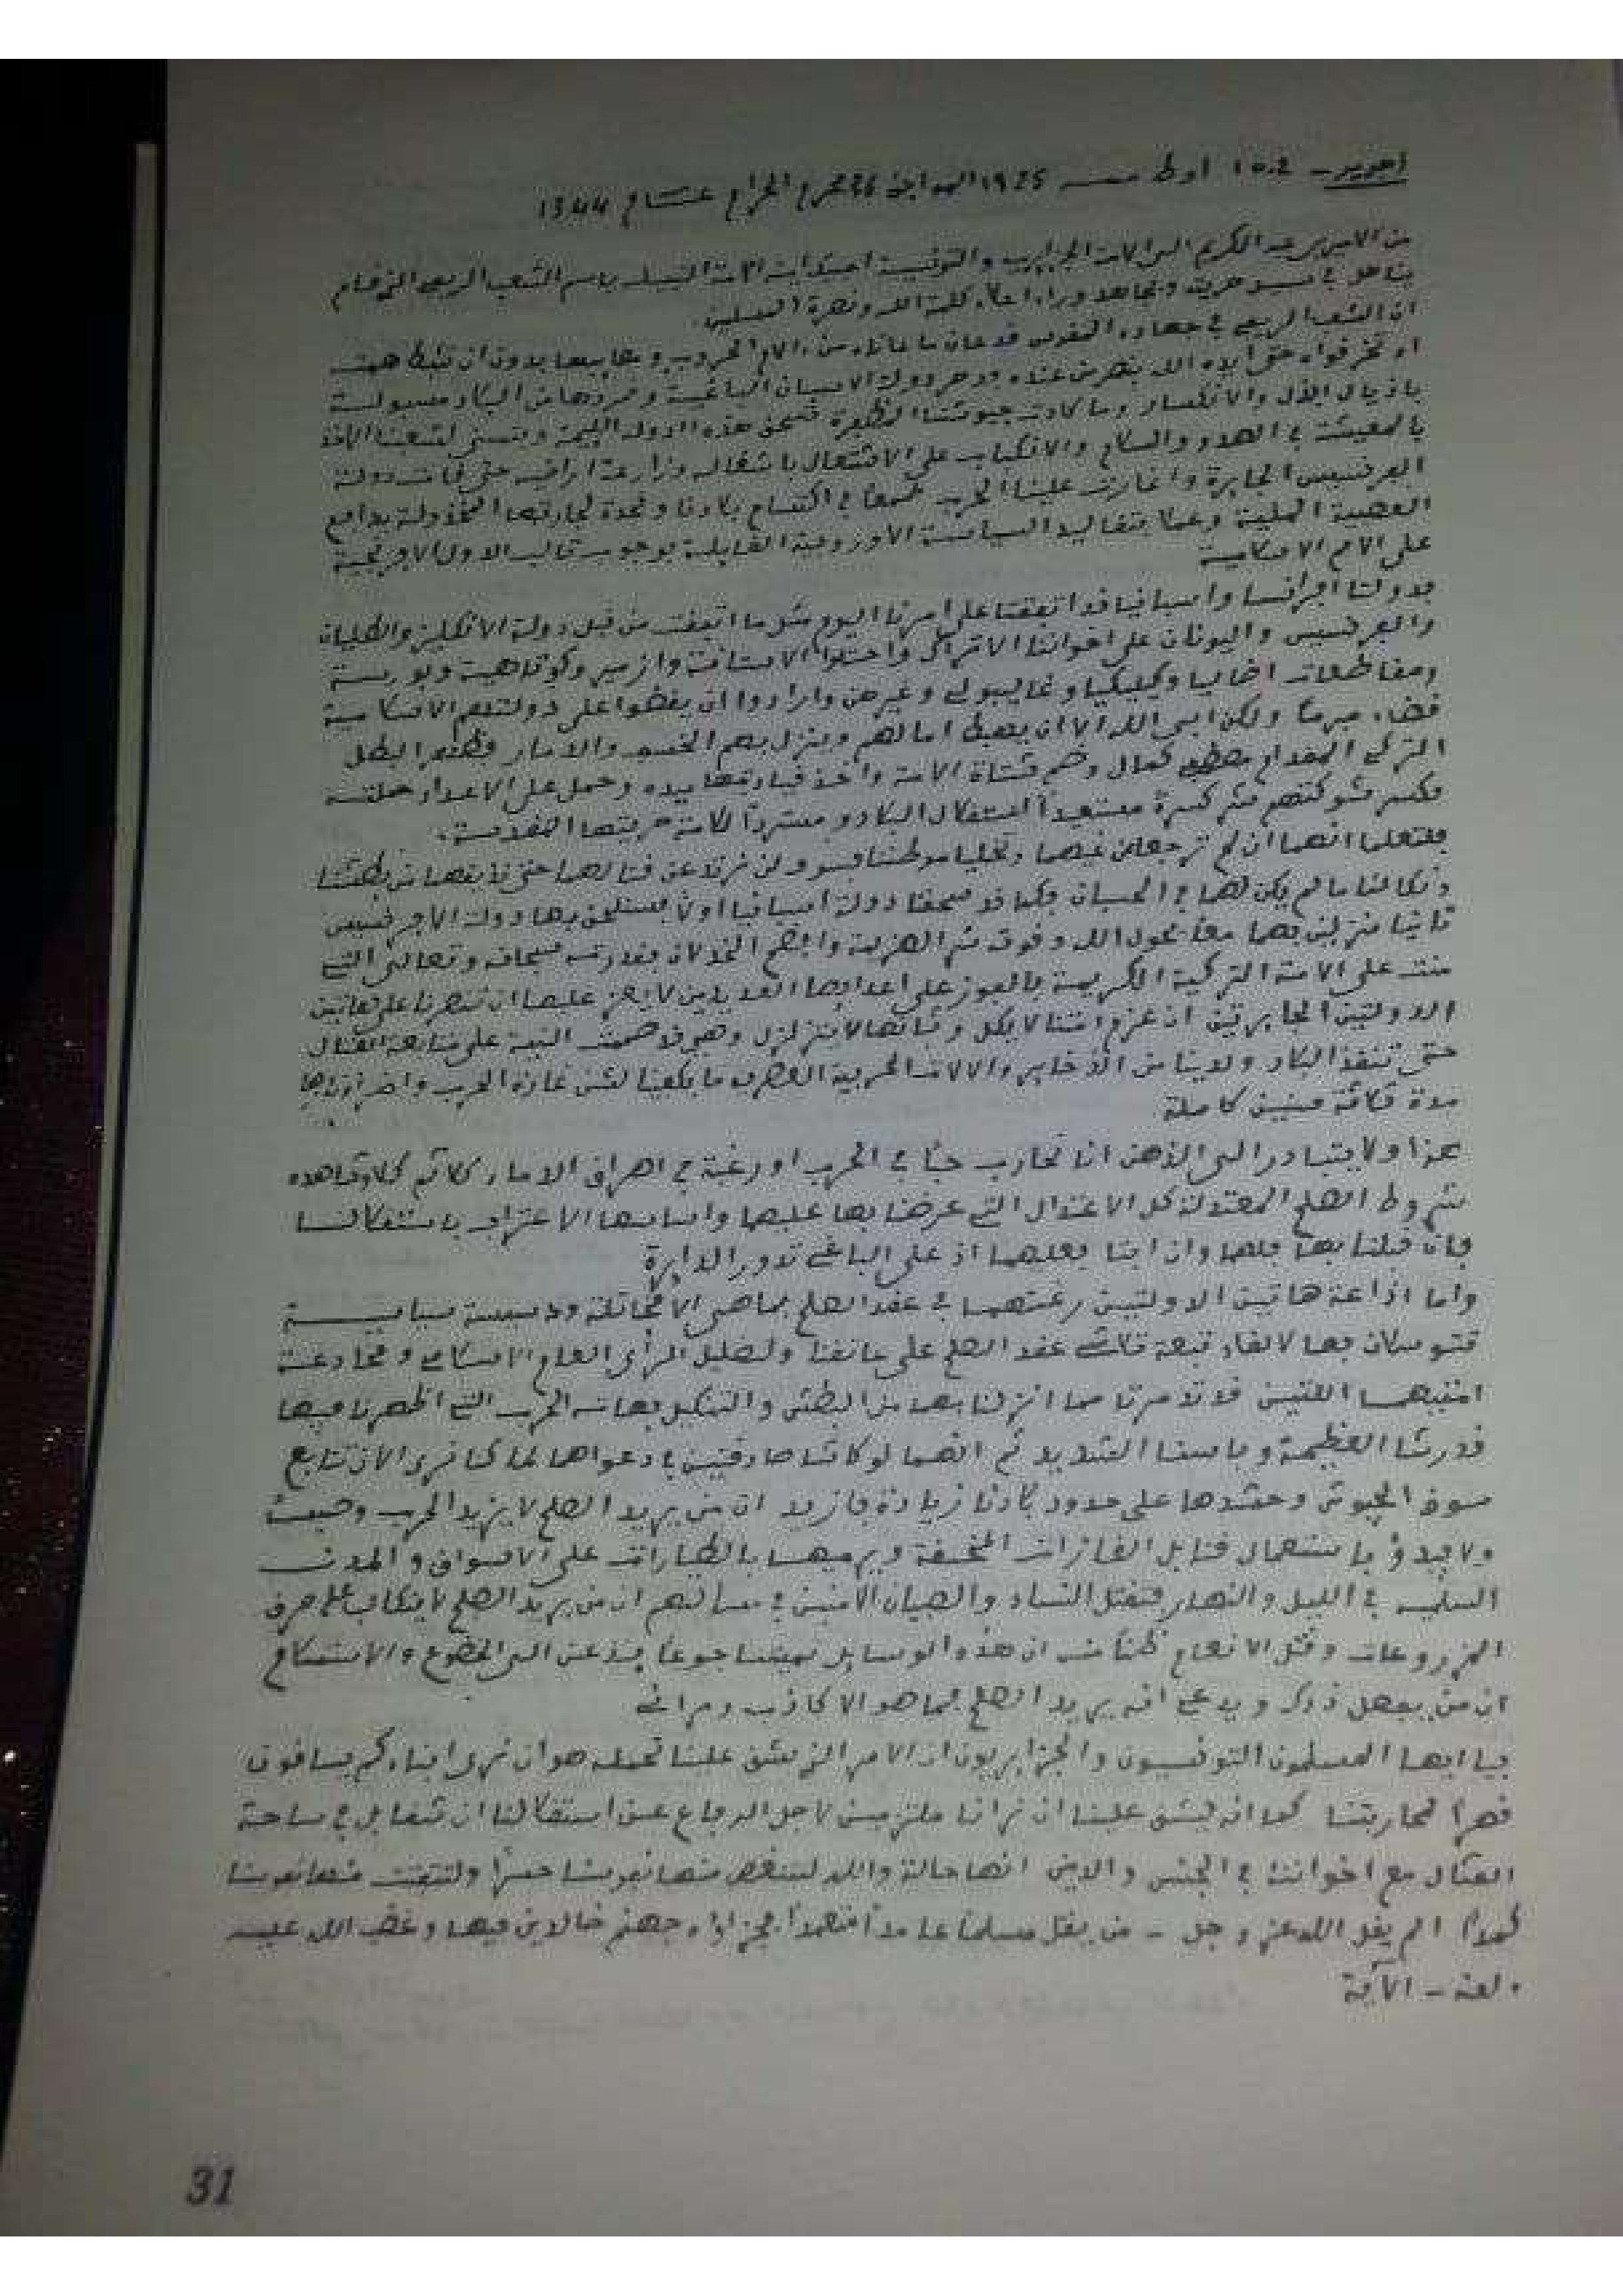 اجدير - 15.2 اوط سنة 1925 الموافق 26 محرم الحرام عام 1344
من الامير عبد الكريم الى الامة الجزايرية والتونسية باسم الشعب الريفي الذي قام
يناضل في سبيل حريته ويجاهد وراء اعلاء كلمة الله ونصرة المسلمين.
ان الشعب الريفي في جهاده المقدس قد عانى ما عاناه من الام الحروب ومصايبها بدون ان تثبط همته
او تخر قواه حتى ايده الله بنصر من عنده ودحر دولة الاسبان الباغية وطردها من البلاد مسربلة
باذيال الذل والانكسار وما كادت جيوشنا المظفرة تسحق هذه الدولة اللئيمة ويتسنى لشعبنا الاخذ
بالمعيشة في الهدوء والسلام والانكباب على الاشتغال باشغاله وزارعة اراضيه حتى قامت دولة
الفرنسيس الجايرة واغارت علينا الحرب طمعا في اكتساح بلادنا ونجدة لجارتها المخذولة بدافع
العصبية الملية وعملا بتقاليد السياسة الاوروبية القايلة بوجوب تالب الدول الافرنجية
على الامم الاسلامية
فدولتا افرانسا واسبانيا قد اتفقتا على امرنا اليوم مثل ما اتفقت من قبل دولة الانكليز والطليان
والفرنسيس واليونان على اخواننا الاتراك واحتلوا الاستانة وازمير وكوتاهية وبورسة
ومقاطعات اضاليا وكيليكيا وغاليبولي وغيرهن وارادوا ان يقضوا على دولتهم الاسلامية
قضاء مبرما ولكن ابى الله الا ان يحبط امالهم وينزل بهم الخسف والدمار فظهر البطل
التركي المقدام مصطفى كمال وضم شتات الامة واخذ قيادتها بيده وحمل على الاعداء حملته
فكسر شوكتهم شر كسرة مستعيدا استقلال البلاد ومستردا للامة حريتها المقدسة.
فلتعلما انهما ان لم ترجعا عن غيهما وتخليا موطننا فسوف لن نرتد عن قتالهما حتى نذيقهما من بطشنا
ونكالنا ما لم يكن لهما في الحسبان فكما قد سحقنا دولة اسبانيا اولا سنلحق بها دولة الافرنسيس
ثانيا منزلين بهما معا بحول الله وقوته شر الهزيمة واقبح الخذلان بقدرته سبحانه وتعالى التي
منت على الامة التركية الكريمة بالفوز على اعدايها العديدين لا يعز عليها ان تنصرنا على هاتين
الدولتين الجايرتين ان عزم امتنا لا يكل وثباتها لا يتزلزل وهي قد صممت النية على متابعة القتال
حتى تنقذ البلاد ولدينا من الذخاير والالات الحربية العصرية ما يكفينا لشن غارة الحرب واضرام نارها
مدة ثلاثة سنين كاملة
هذا ولا يتبادر الى الذهن انا نحارب حبا في الحرب او رغبة في اهراق الدماء كلا ثم كلا وهذه
شروط الصلح المعتدلة كل الاعتدال التي عرضنا بها عليهما واساسها الاعتراف باستقلالنا
فان قبلنا بها فلهما وان ابتا فعليهما اذ على الباغي تدور الدايرة
واما اذاعة هاتين الدولتين رغبتهما في عقد الصلح فما هي الا مخاتلة ودسيسة سياسية
تتوسلان بها لالقاء تبعة تلاشي عقد الصلح على عاتقنا ولتضليل الرأي العام الاسلامي ومخادعة
امتيهما اللتين قد تذمرتا مما انزلنا بهما من البطش والتنكيل بهاته الحرب التي اظهرنا فيها
قدرتنا العظيمة وباسنا الشديد ثم انهما لو كانتا صادقتين في دعواهما لما كنا نرى الان تتابع
سوق الجيوش وحشدها على حدود بلادنا زيادة فازيد ان من يريد الصلح لا يزيد الحرب
ولا يبدؤ باستعمال قنابل الغازات المخنقة ويرميها بالطيارات على الاسواق والمدن
السلمية في الليل والنهار فتقتل النساء والصبيان الامنين في مساكنهم ان من يريد الصلح لا يتكالب على حرق
المزروعات وقتل الانعام ظنا منه ان هذه الوسايل تميتنا جوعا فنذعن الى الخضوع والاستسلام
ان من يفعل ذلك ويدعي انه يريد الصلح فما هو الا كاذب ومرائي
فيا ايها المسلمون التونسيون والجزايريون ان الامر الذي يشق علينا تحمله هو ان نرى ابناءكم يساقون
قهرا لمحاربتنا كما انه ليشق علينا ان نرانا ملتزمين لاجل الدفاع عن استقلالنا ان نتقابل في ساحة
القتال مع اخواننا في الجنس والدين انها حالة والله لتنغص منها نفوسنا حسرا ولتتفتت منها نفوسنا
كمدا الم يقل الله عز وجل - من يقتل مسلما عامدا متعمدا فجزاؤه جهنم خالدين فيها وغضب الله عليه
ولعنه - الآية
31